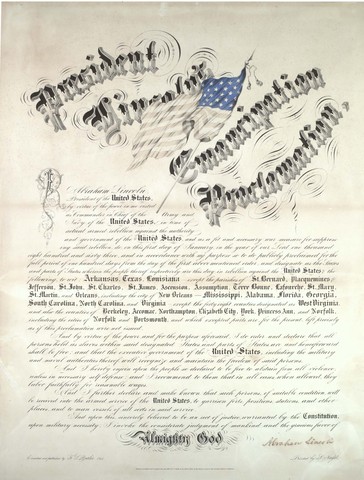 President
Lincoln's
Emancipation
Proclamation.
I, Abraham Lincoln
President of the United States,
by virtue of the power in me vested
as Commander in Chief of the Army and
Navy of the United States, in time of
actual armed rebellion against the authority
and government of the United States and as a fit and necessary war measure for suppress-
ing said rebellion do on this first day of January in the year of our Lord one thousand
eight hundred and sixty three, and in accordance with my purpose so to do publicly proclaimed for the
full period of one hundred days from the day of the first above mentioned order and designate as the States
and parts of States wherein the people thereof respectively are this day in rebellion against the United States, the
following, to wit: Arkansas, Texas, Louisiana except the parishes of St. Bernard, Plaquemines,
Jefferson, St. John, St. Charles, St. James, Ascension, Assumption, Terre Bonne, Lafourche, St. Mary,
St. Martin, and Orleans, including the city of New Orleans Mississippi, Alabama, Florida, Georgia,
South Carolina, North Carolina, and Virginia except the forty eight counties designated as West Virginia,
and also the counties of Berkeley, Accomac, Northampton, Elizabeth City, York, Princess Ann, and Norfolk,
including the cities of Norfolk and Portsmouth, and which excepted parts are for the present left precisely
as if this proclamation were not issued.
And by virtue of the power and for the purpose aforesaid, I do order and declare that all
persons held as slaves within said designated States and parts of States are and henceforward
shall be free, and that the executive government of the United States, including the military
and naval authorities thereof will recognize and maintain the freedom of said persons.
And I hereby enjoin upon the people so declared to be free to abstain from all violence
unless in necessary self defence and I recommend to them that in all cases when allowed they
labor faithfully for reasonable wages.
And I further declare and make known that such persons of suitable condition will
be received into the armed service of the United States, to garrison forts, positions, stations and other
places, and to man vessels of all sorts in said service.
And upon this, sincerely believed to be an act of justice, warranted by the Constitution,
upon military necessity, I invoke the considerate judgment of mankind and the gracious favor of
Almighty God
Abraham Lincoln